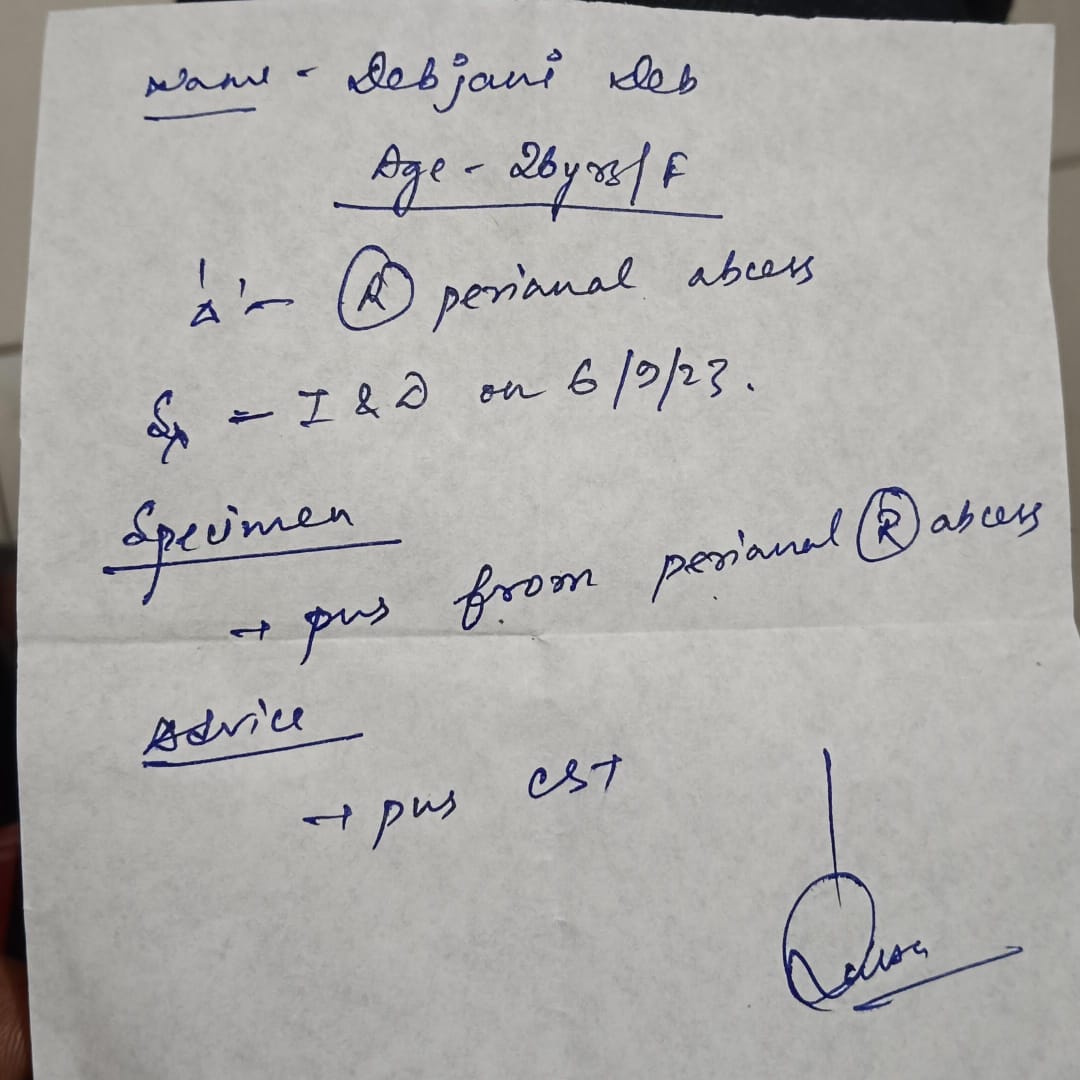 Name - Debjani Deb
Age - 26yrs/F
Δ - Ⓡ perianal abcess
Sx = I & D on 6/9/23.
Specimen
→ pus from perianal Ⓡ abcess
Advice
→ pus CST